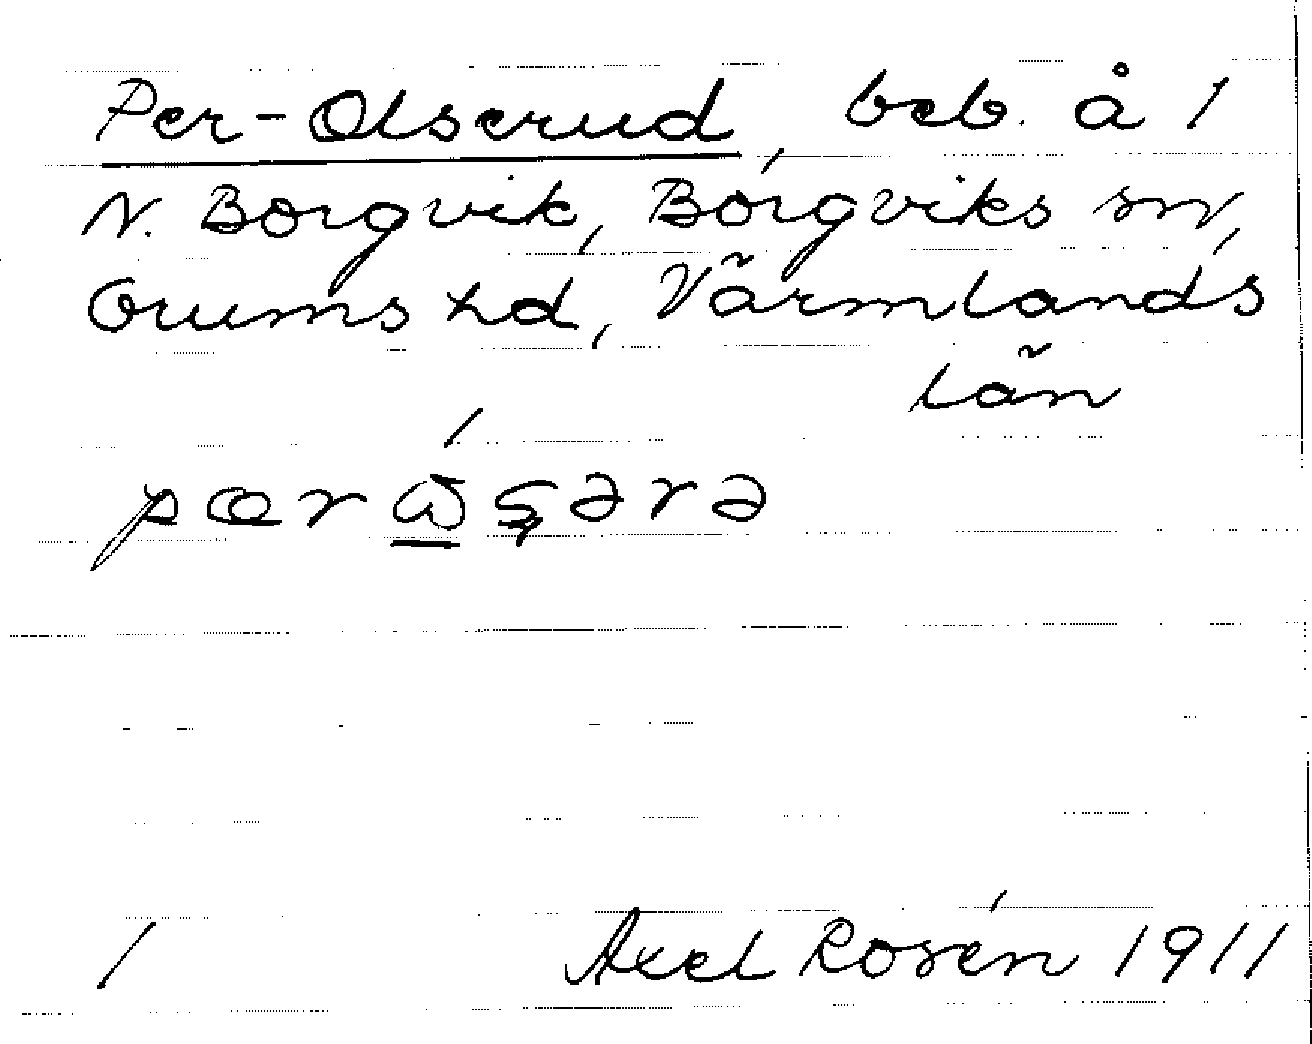 Per-Olserud, beb. å 1
N. Borgvik, Borgviks sn,
Grums hd, Värmlands
län
1 Axel Rosén 1911